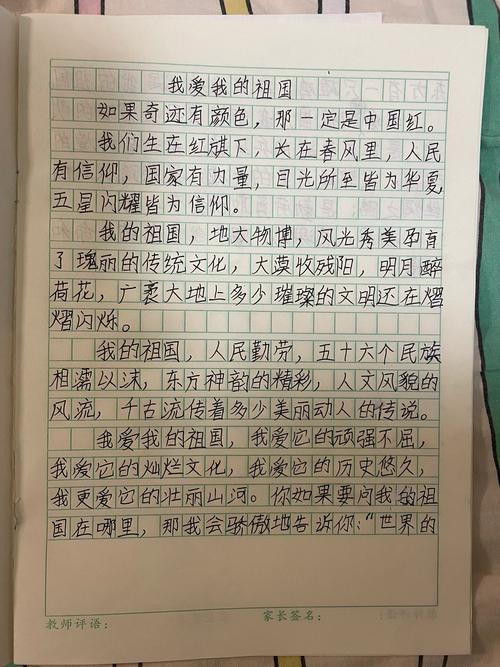 我爱我的祖国
如果奇迹有颜色，那一定是中国红。
我们生在红旗下，长在春风里，人民
有信仰，国家有力量，目光所至皆为华夏，
五星闪耀皆为信仰。
我的祖国，地大物博，风光秀美孕育
了瑰丽的传统文化，大漠收残阳，明月醉
荷花，广袤大地上多少璀璨的文明还在熠
熠闪烁。
我的祖国，人民勤劳，五十六个民族
相濡以沫，东方神韵的精彩，人文风貌的
风流，千古流传着多少美丽动人的传说。
我爱我的祖国，我爱它的顽强不屈，
我爱它的灿烂文化，我爱它的历史悠久，
我更爱它的壮丽山河。你如果要问我的祖
国在哪里，那我会骄傲地告诉你："世界的
教师评语： 家长签名：